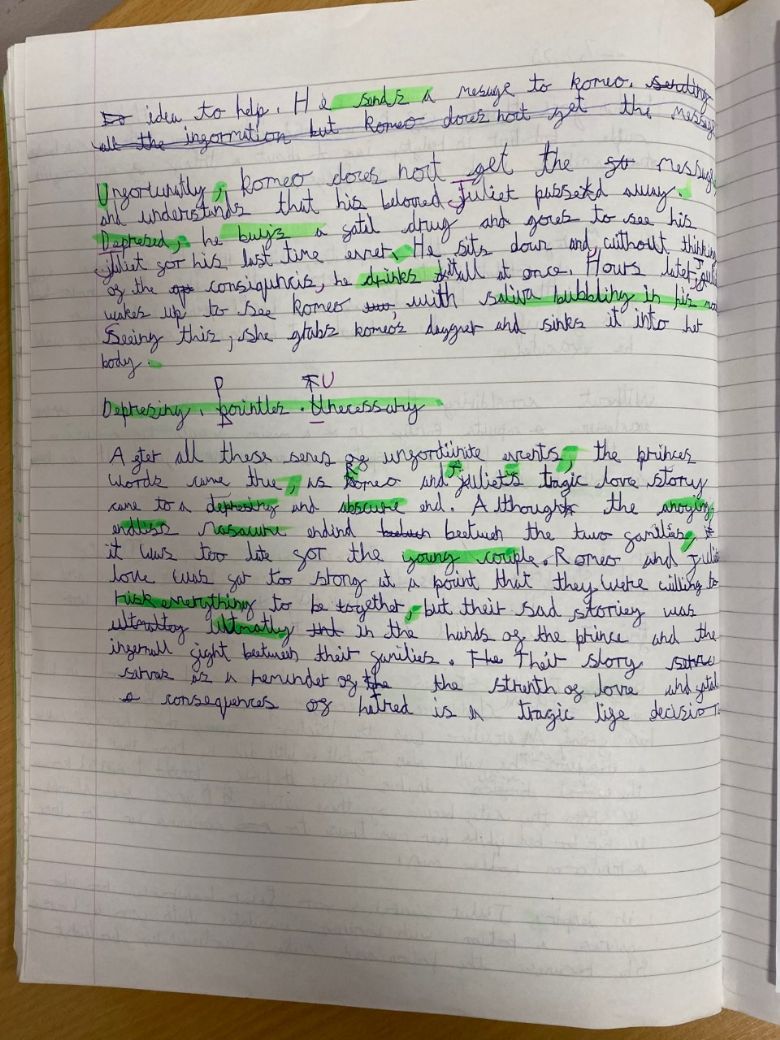 idea to help. He sends a mesuge to Romeo. sending
all the ingormation but Romeo doves nort get the messag
Ungortunatly, Romeo doves nort get the messug
and understands that his beloved Juliet passed away.
Depresed, he buys a gatil drug and goves to see his
juliet gor his last time ervet. He sits down and, without thinkin
og the consiquncis, he drinks it all at once. Hours later,
wakes up to see Romeo, with saliva bubbling in his
Seeing this, she grabs Romeo's daggret and sinks it into her
body.
P U
Deprezing. pointles. Unecessary
Agter all these seris og ungortünite events, the princes
words came true, as Romeo and juliet's tragic love story
came to a depresing and abscure end. Although the anoying
endless masacure endind between the two gamilies,
it was too late gor the young couple. Romeo and
love was got too stong at a point that they were willing to
risk enerything to be together, but their sad storiey was
ultimatly in the hands og the prince and the
ingernall gight beetween their gamilies. The Their story
sarvas as a reminder og the the strenth og lorve and gatal
consequences og hatred is a tragic lige decizion.